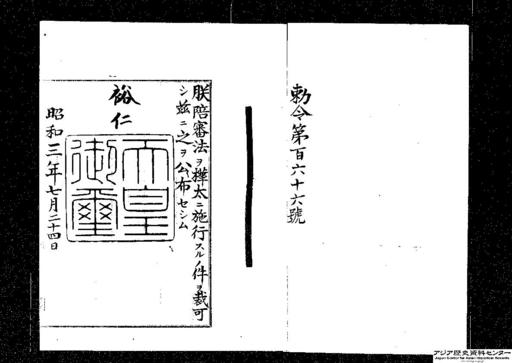 勅令第百六十六號
朕陪審法ヲ樺太ニ施行スルノ件ヲ裁可
シ茲ニ之ヲ公布セシム
裕仁
天皇御璽
昭和三年七月二十四日
アジア歴史資料センター
Japan Center for Asian Historical Records